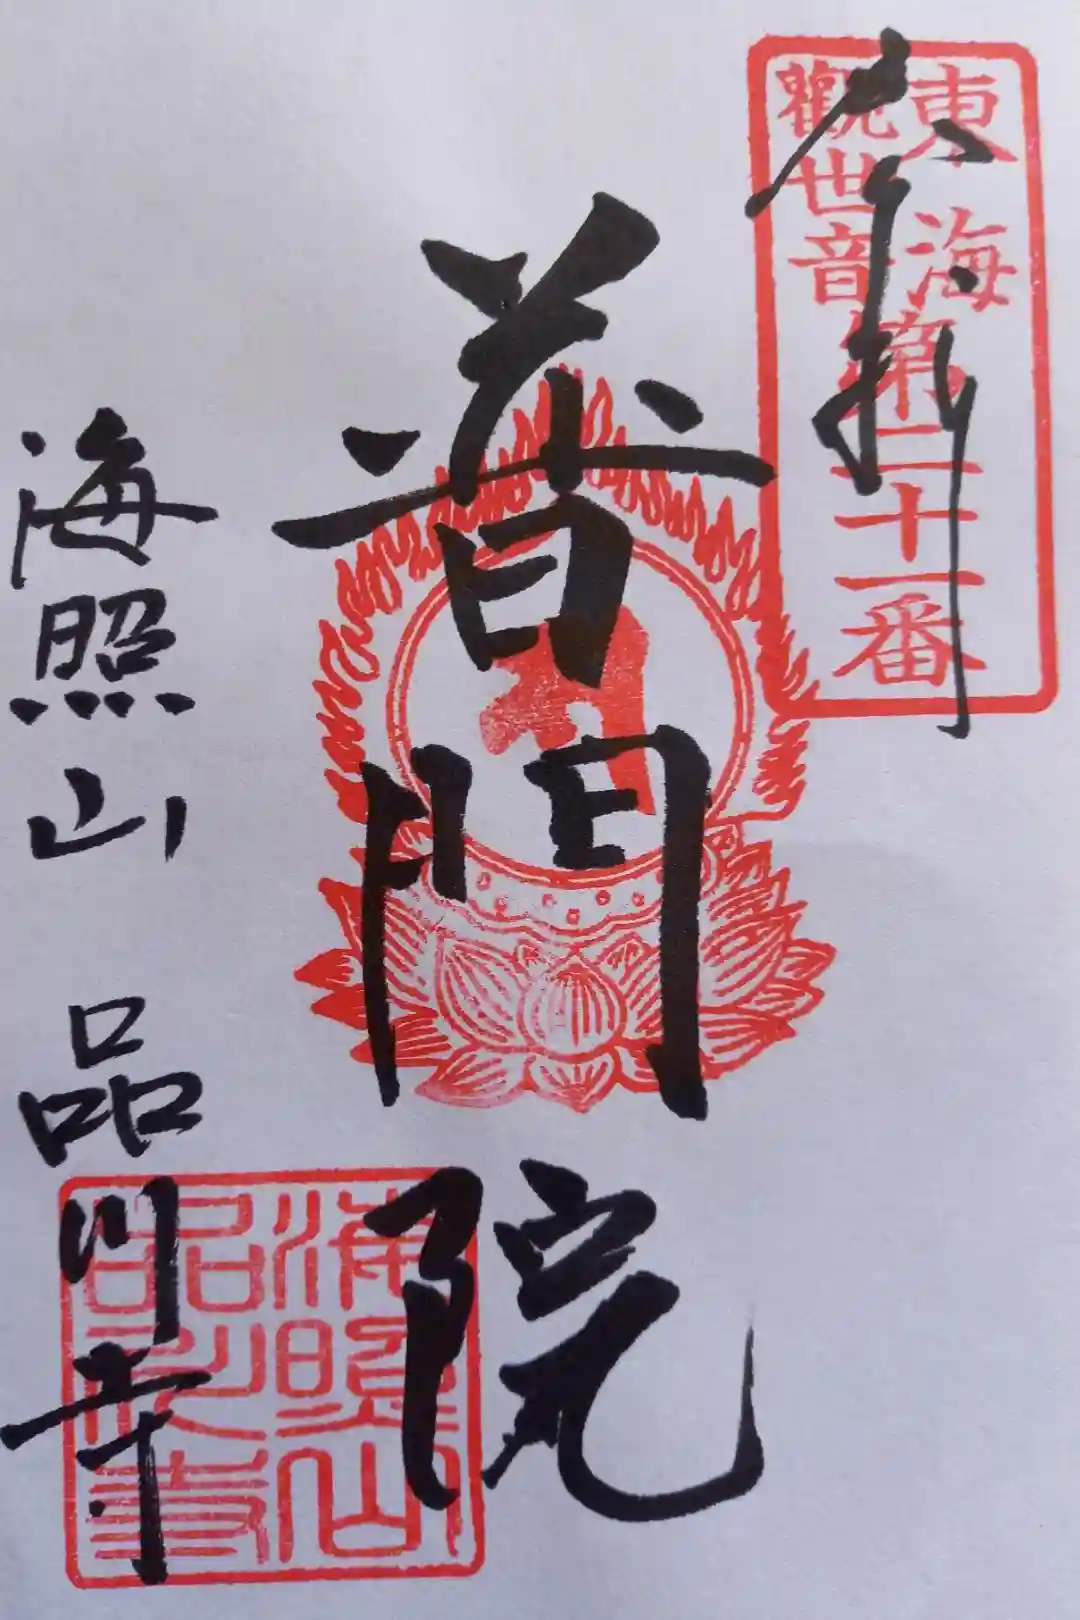 奉拝
東海
觀世音
第二十一番
普門院
海照山 品川寺
海照山
品川寺